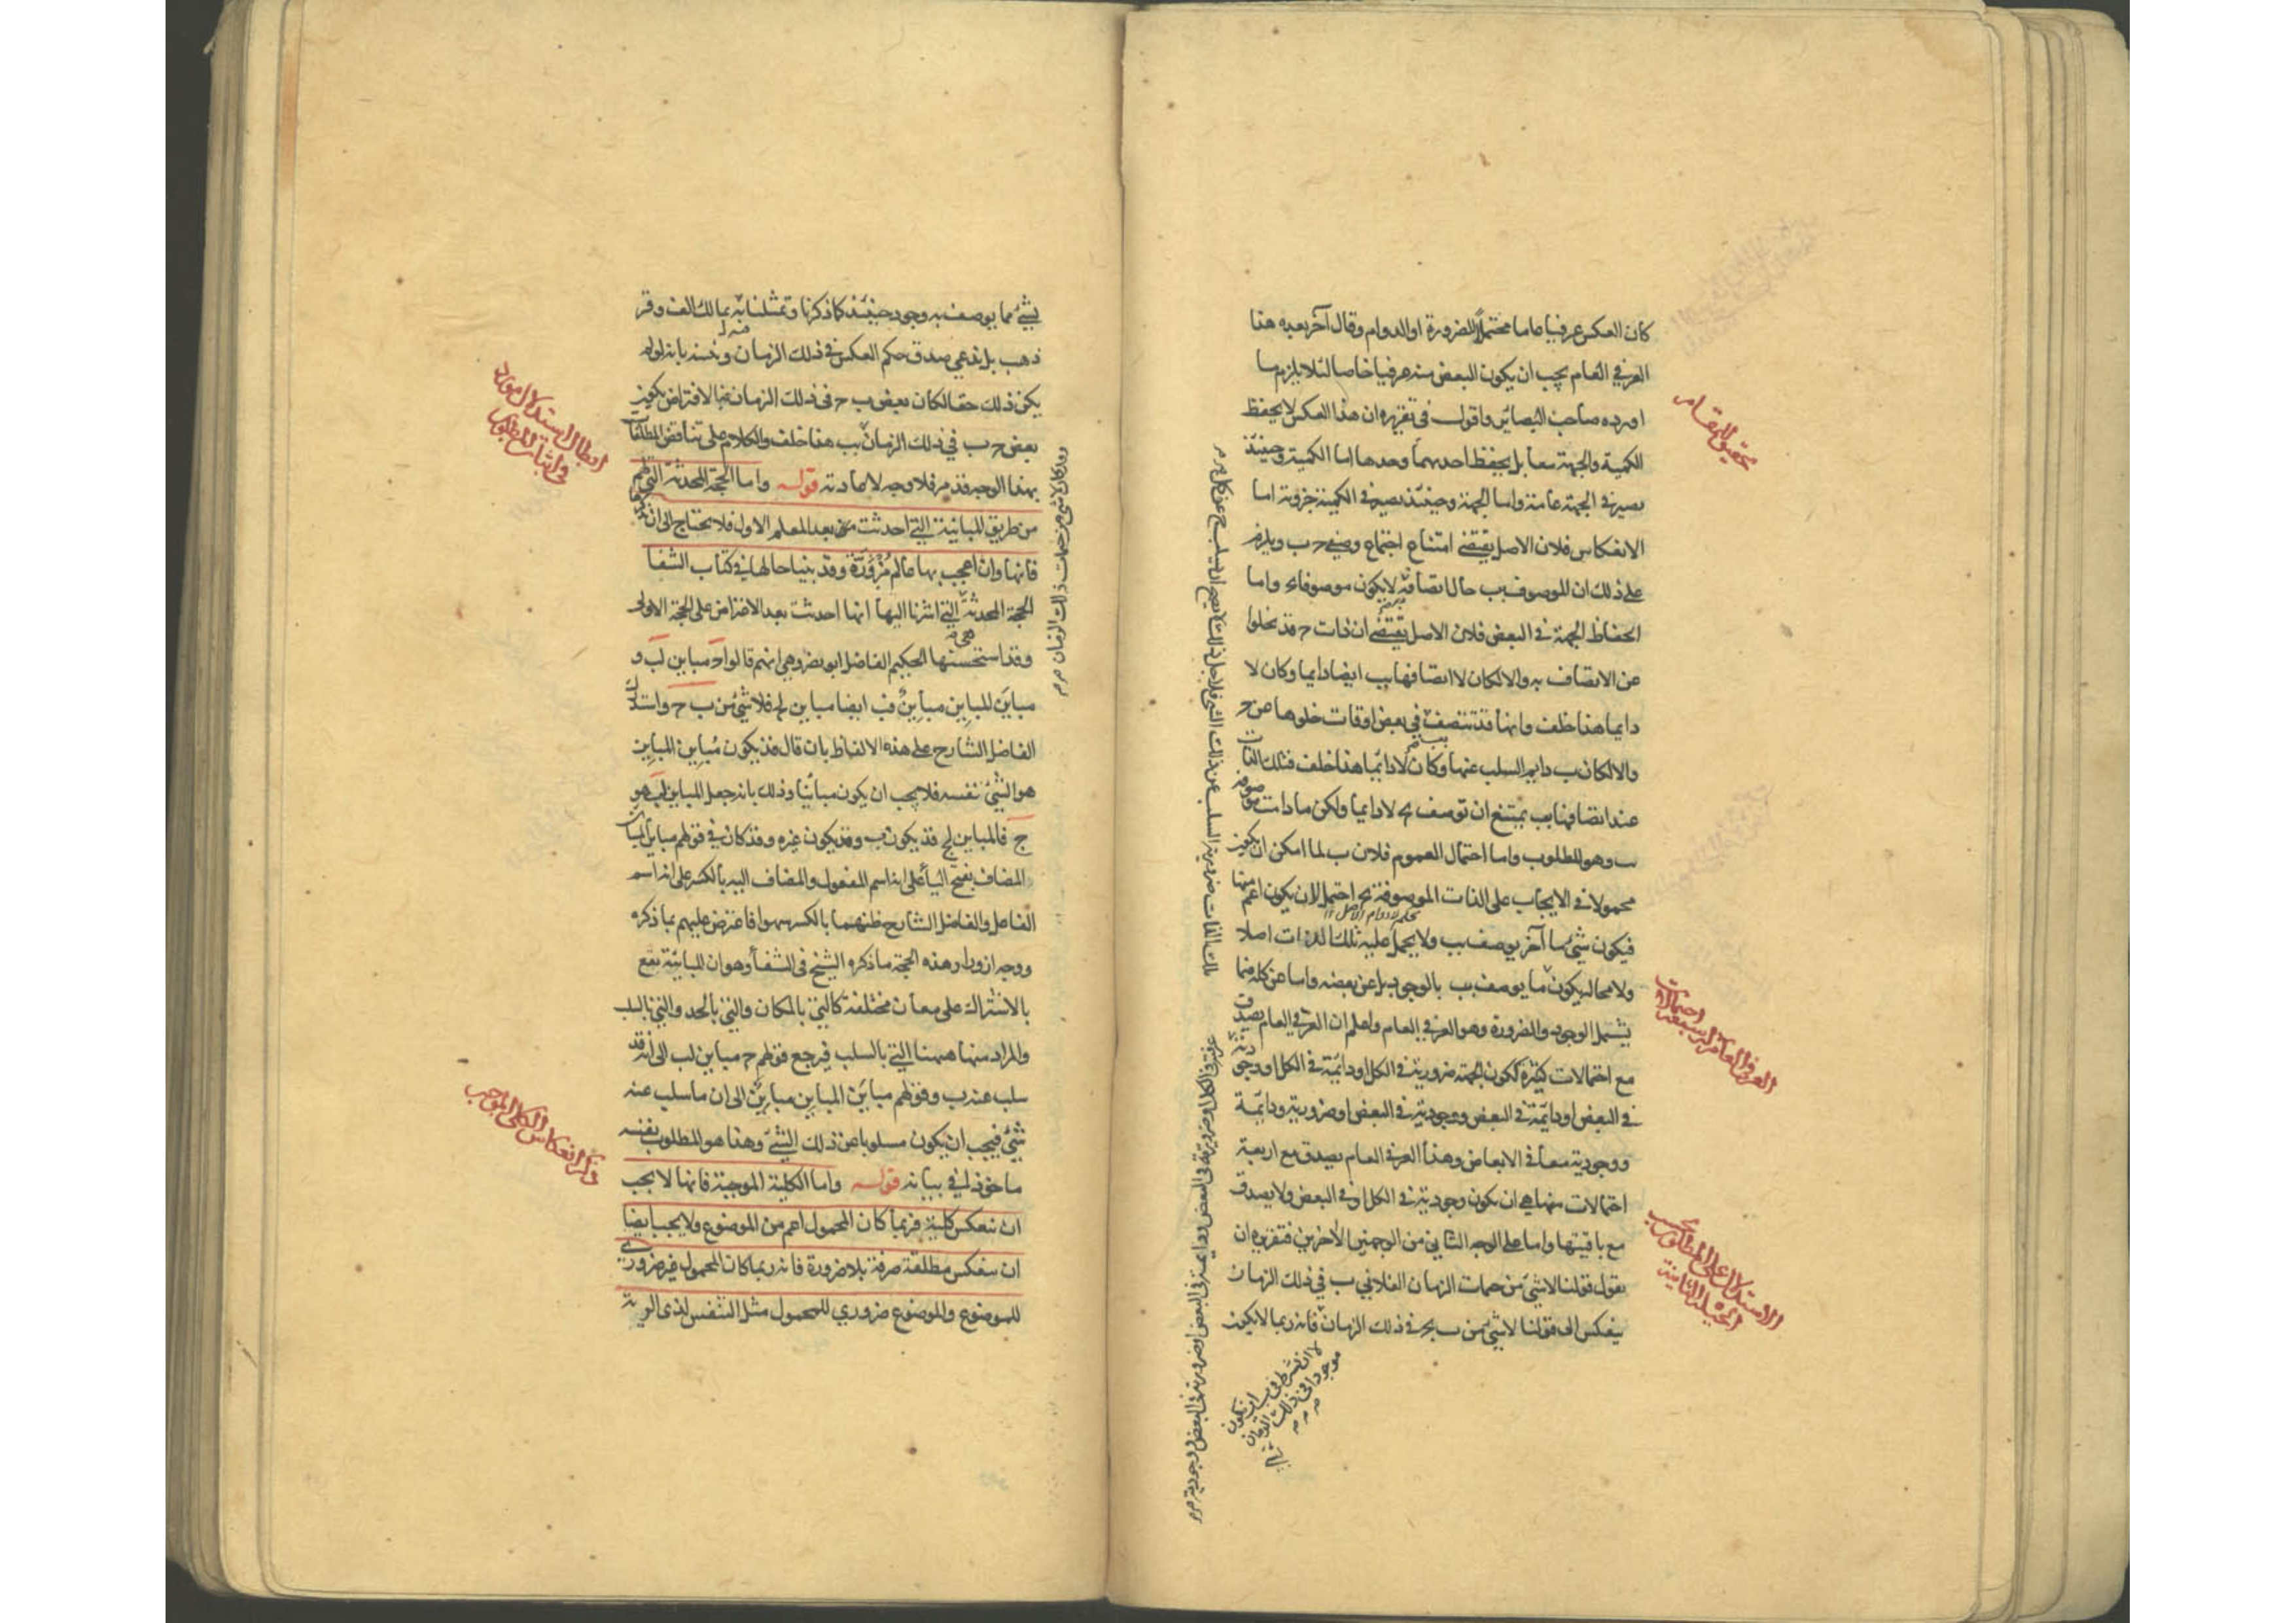 كان العكس عرفيا عاما محتملا للضرورة او الدوام وقال آخر بعده هذا
العرفي العام يجب ان يكون البعض منه عرفيا خاصا لئلا يلزم ما
اورده صاحب البصائر واقول في تقريره ان هذا العكس لا يحفظ
الكمية والجهة معا بل يحفظ احديهما وحدها اما الكمية وحينئذ
يصير في الجهة عامة واما الجهة وحينئذ يصير في الكمية جزوية اما
الانعكاس فلان الاصل يقتضي امتناع اجتماع وصفي ح ب ويلزم
على ذلك ان الموصوف ب حال اتصافه لا يكون موصوفا واما
انحفاظ الجهة في البعض فلان الاصل يقتضي ان ذات ح قد يخلوا
عن الاتصاف به والا لكان لا اتصافها ب ايضا دايما وكان لا
دايما هذا خلف وانها قد تتصف في بعض اوقات خلوها عن ح
والا لكان ب دايم السلب عنها وكان لا دائما هذا خلف فتلك الذات
عند اتصافها ب يمتنع ان توصف بح لا دايما ولكن ما دامت موصوفة
ب وهو المطلوب واما احتمال العموم فلان ب لما امكن ان يكون
محمولا في الايجاب على الذات الموصوفة بح احتمل لان يكون اعم منها
فيكون شيئ ما آخر يوصف ب ولا يحمل عليه تلك الذات اصلا
ولا محالة يكون ما يوصف ب بالوجود بل عن بعضه واما عن كله فما
يشمل الوجود والضرورة وهو العرفي العام واعلم ان العرفي العام يصدق
مع احتمالات كثيرة ككون الجهة ضرورية في الكل او دائمة في الكل او وجودية
في البعض او دائمة في البعض ووجودية في البعض او ضرورية ودائمة
ووجودية معا في الابعاض وهذا العرفي العام يصدق مع اربعة
احتمالات منها هي ان يكون وجودية في الكل او في البعض ولا يصدق
مع باقيتها واما على الوجه الثاني من الوجهين الاخرين فتقريره ان
يقول قولنا لا شيئ من حمات الزمان الفلاني ب في ذلك الزمان
ينعكس الى قولنا لا شيئ من ب بح في ذلك الزمان فانه ربما لا يكون
تحقيق المقام
العرفي العام
الاستدلال على المطلوب
بالحيلة الثانية
موجودا في ذلك الزمان
بشيئ مما يوصف به وجود حينئذ كما ذكرنا وتمثلنا به بمالك الف وقر
ذهب بل يدعي صدق حكم العكس في ذلك الزمان وبينه بانه لو لم
يكن ذلك حقا لكان بعض ب ح في ذلك الزمان فبالافتراض يكون
بعض ح ب في ذلك الزمان ب هذا خلف والكلام على تناقض المطلقات
بهذا الوجه قد مر فلا وجه لاعادته قوله واما الحجة المحدثة التي لهم
من طريق المباينة التي احدثت من بعد المعلم الاول فلا يحتاج الى ان نذكرها
فانها وان اعجب بها عالم مزورة وقد بينا حالها في كتاب الشفا
الحجة المحدثة التي اشرنا اليها انها احدثت بعد الاعتراض على الحجة الاولى
وقد استحسنها الحكيم الفاضل ابو نصر وهي انهم قالوا ح مباين لب و
مباين المباين مباين فب ايضا مباين لح فلا شيئ من ب ح واستدرك
الفاضل الشارح على هذه الالفاظ بان قال قد يكون مباين المباين
هو الشيئ نفسه فلا يجب ان يكون مباينا وذلك بانه جعل المباين لب هو
ج فالمباين لج قد يكون ب وقد يكون غيره وقد كان في قولهم مباين المباين
المضاف بفتح الياء على انه اسم المفعول والمضاف اليه بالكسر على انه اسم
الفاعل والفاضل الشارح ظنهما بالكسر سهوا فاعترض عليهم بما ذكره
ووجه ازورار هذه الحجة ما ذكره الشيخ في الشفا وهو ان المباينة تقع
بالاشتراك على معان مختلفة كالتي بالمكان والتي بالحد والتي بالسلب
والمراد منها ههنا التي بالسلب فيرجع قولهم ح مباين لب الى انه قد
سلب عنه ب وقولهم مباين المباين مباين الى ان ما سلب عنه
شيئ فيجب ان يكون مسلوبا عن ذلك الشيئ وهذا هو المطلوب بنفسه
ماخوذ في بيانه قوله واما الكلية الموجبة فانها لا يجب
ان تنعكس كلية فربما كان المحمول اعم من الموضوع ولا يجب ايضا
ان ينعكس مطلقة صرفة بلا ضرورة فانه ربما كان المحمول غير ضروري
للموضوع والموضوع ضروري للمحمول مثل التنفس لذي الرية
ابطال استدلال المورد
في اثبات المطلوب
ذكر انعكاس الكلي الموجب